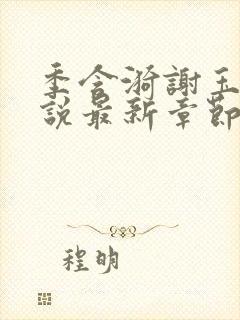 季含漪謝玉
說最新章節
程明